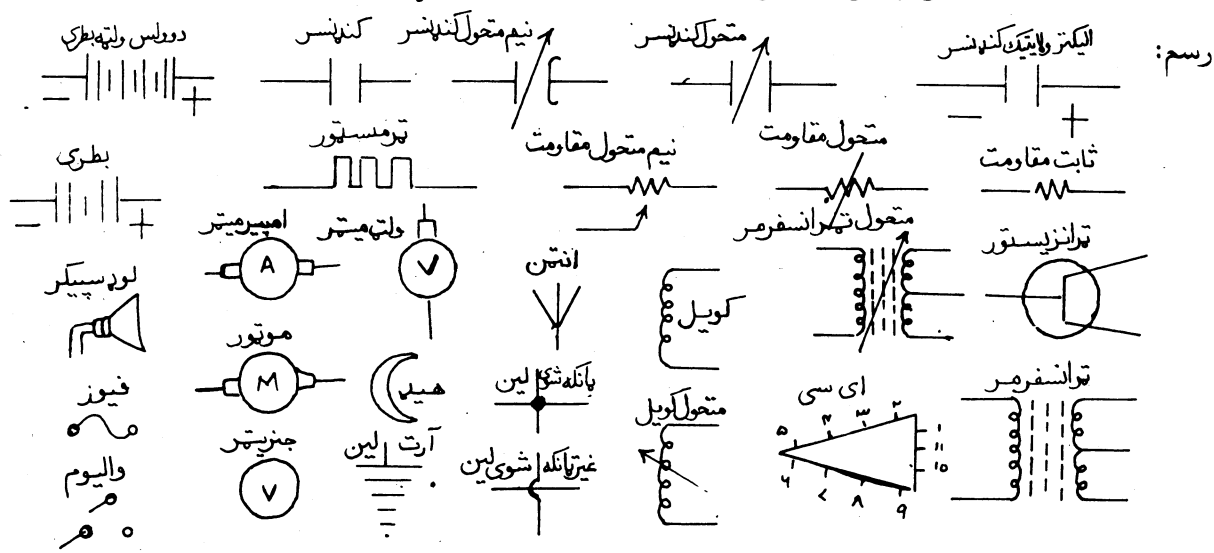 رسم:
الیکترولایتیک کندنسر
متحول کندنسر
نیم متحول کندنسر
کندنسر
دوولس ولټه بطری
− +
− +
ثابت مقاومت
متحول مقاومت
نیم متحول مقاومت
ترمستور
بطری
− +
ترانزیستور
متحول ترانسفرمر
کویل
انتن
ولټ میټر
V
امپیر میټر
A
لوډ سپیکر
ترانسفرمر
ای سی
۱ ۲ ۳ ۴ ۵ ۶ ۷ ۸ ۹ ۱۰ ۱۱
متحول کویل
بانکه شوی لین
غیر بانکه شوی لین
هیډ
آرت لین
موټور
M
جنریټر
V
فیوز
والیوم